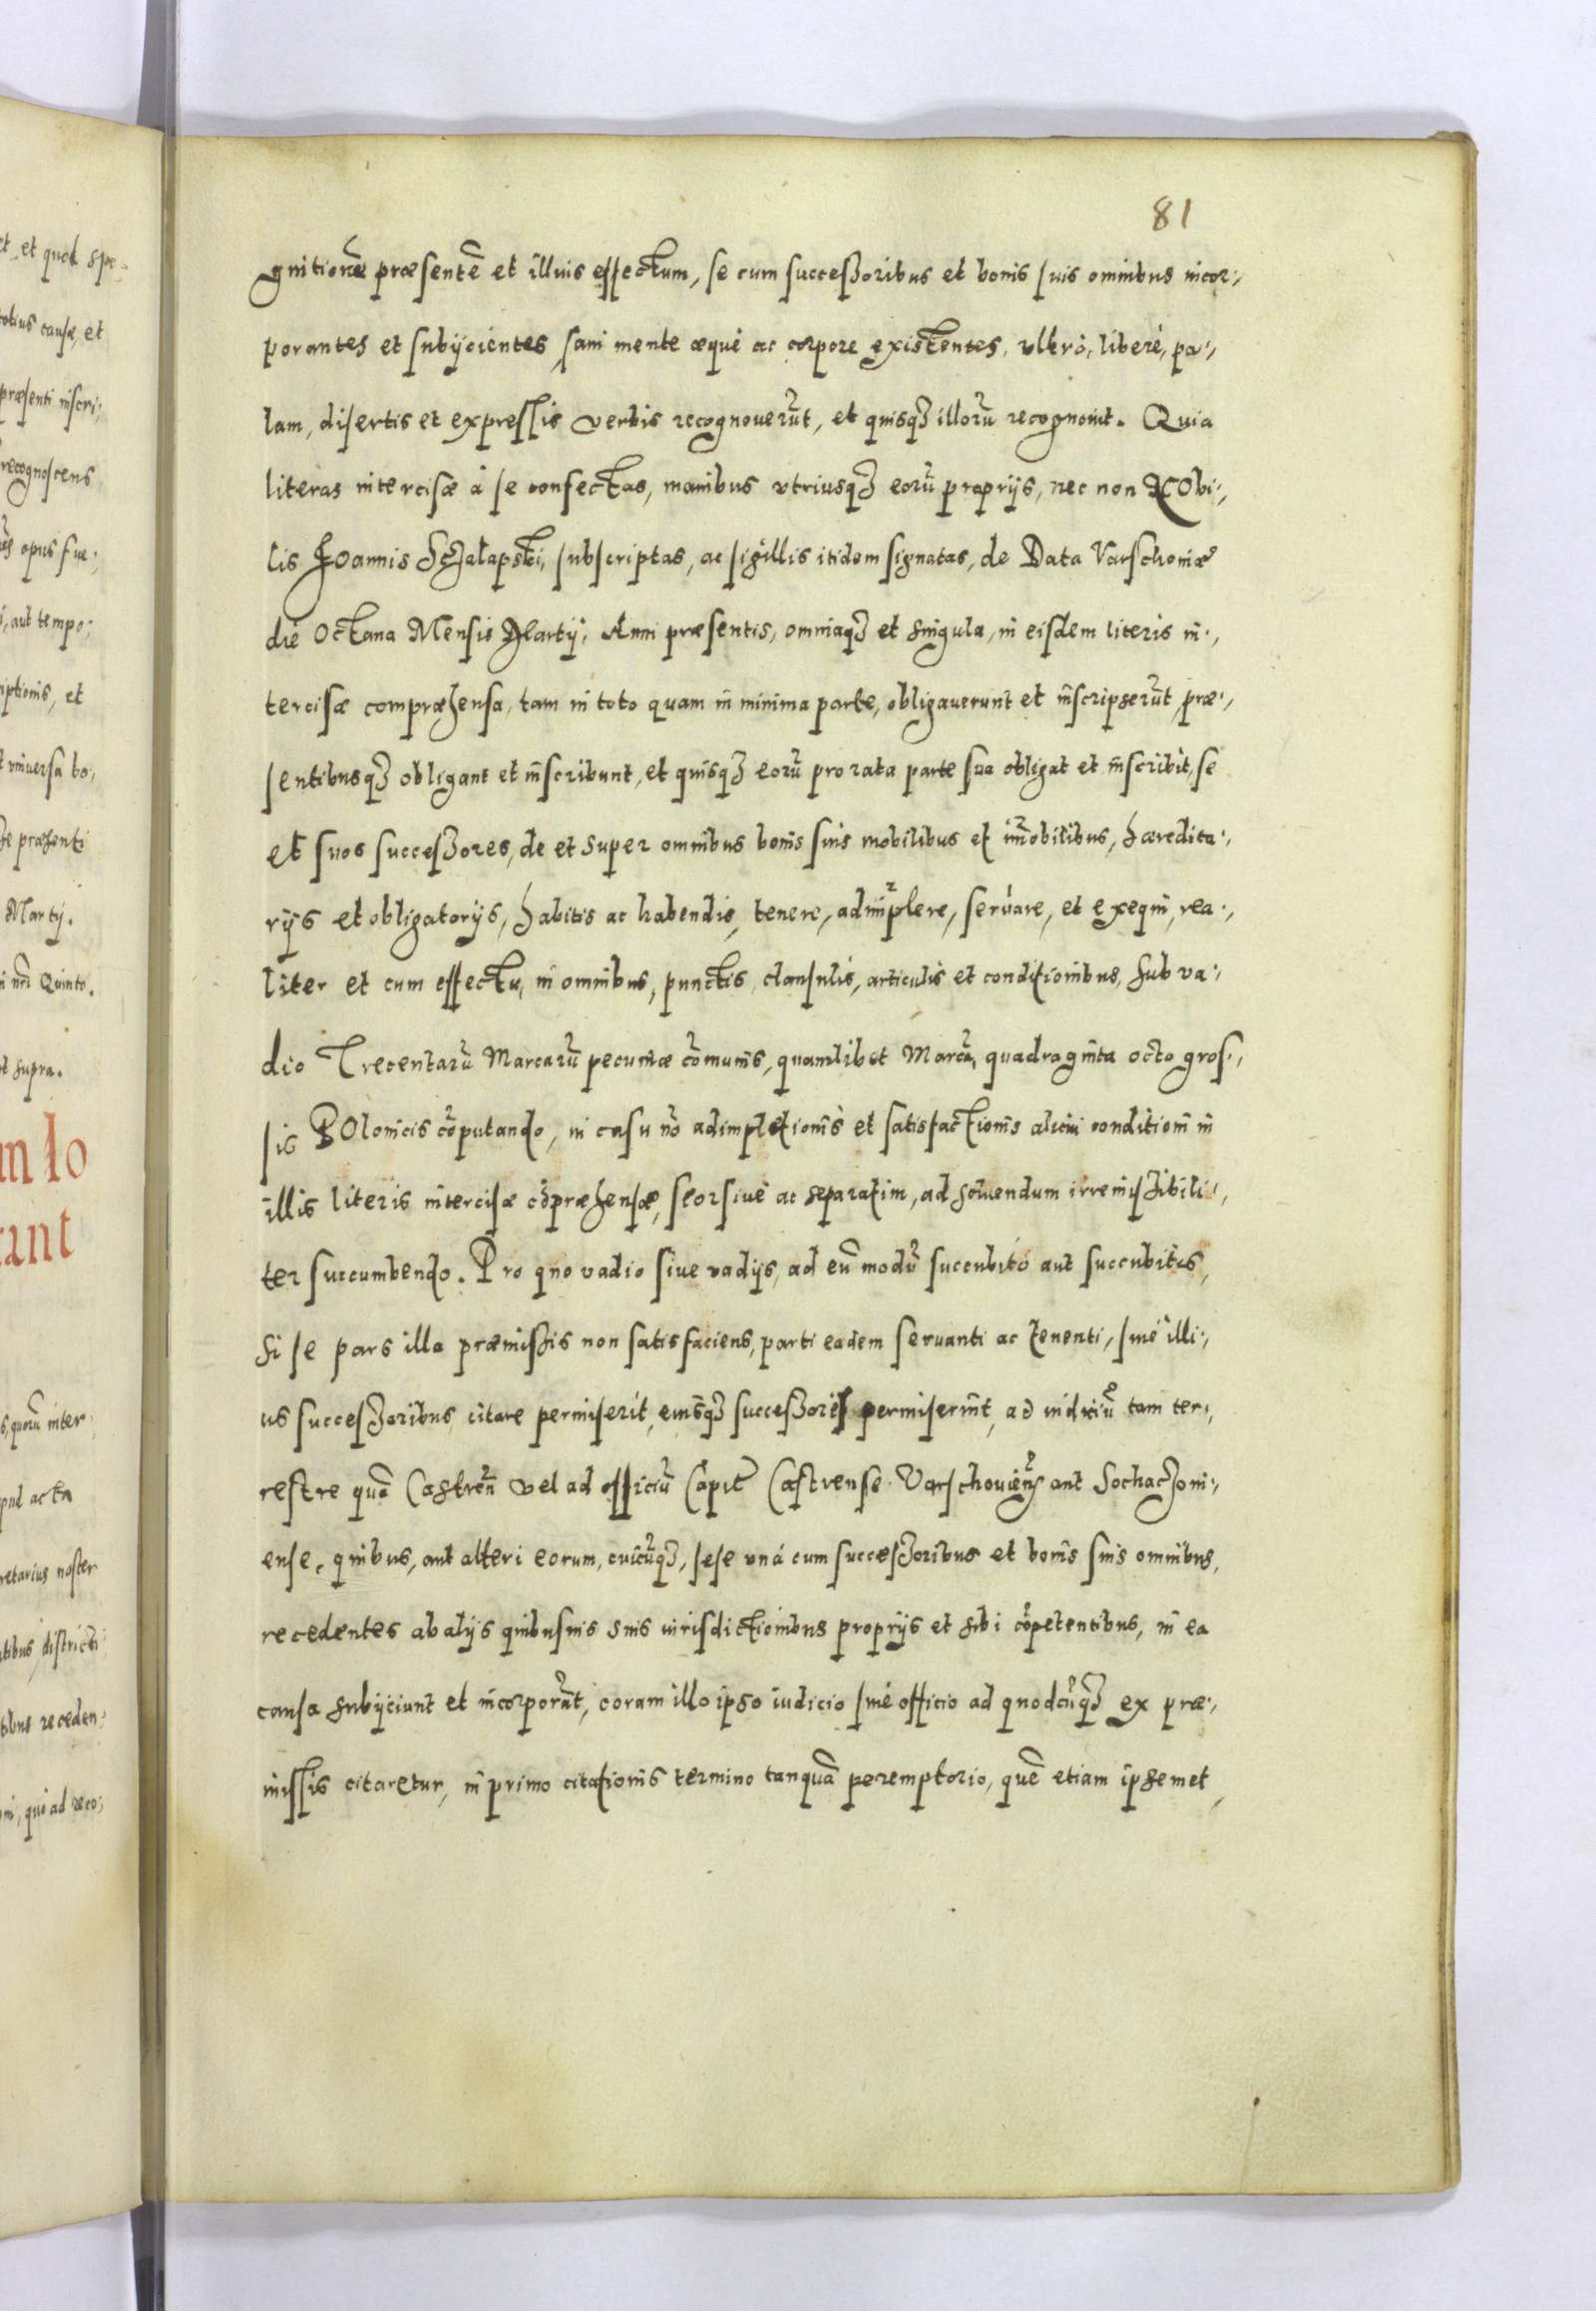 81
gnitionē præsentē et illius effectum, se cum successoribus et bonis suis omnibus incor:,
porantes et subijcientes, sani mente æquè ac corpore existentes, vltrò, liberè, pa:,
lam, disertis et expressis verbis recognouerūt, et quisqȝ illorū recognouit. Quia
literas intercisæ à se confectas, manibus vtriusqȝ eorū proprijs, nec non NObi:,
lis Joannis subscriptas, ac sigillis itidem signatas, de Data Varschouiæ
die Octaua Mensis Martij, Anni præsentis, omniaqȝ et singula, in eisdem literis in:,
tercisæ compræhensa, tam in toto quam in minima parte, obligauerunt et inscripserūt, præ:,
sentibusqȝ obligant et inscribunt, et quisqȝ eorū pro rata parte sua obligat et inscribit, se
et suos successores, de et super omnibus bonis suis mobilibus et im̄obilibus, hæredita:,
rijs et obligatorijs, habitis ac habendis, tenere, adimplere, seruare, et exequi, rea:,
liter et cum effectu, in omnibus, punctis, clausulis, articulis et conditionibus, sub va:,
dio Trecentarū Marcarū pecuniæ cōmunis, quamlibet Marcā, quadraginta octo gros:,
sis POlonicis cōputando, in casu nō adimpletionis et satisfactionis alicui conditioni in
illis literis intercisæ cōpræhensæ, seorsiuè ac separatim, ad soluendum irremissibili:,
ter succumbendo. Pro quo vadio siue vadijs, ad eū modū succubito aut succubitis,
si se pars illa præmissis non satisfaciens, parti eadem seruanti ac tenenti, siuè illi:,
us successoribus, citare permiserit, eiusqȝ successores permiserint, ad iudiciū tam ter:,
restre quā Castreñ vel ad officiū Capit Castrense Varschouieñ aut Sochaczoui:,
ense, quibus, aut alteri eorum, cuicūqȝ, sese vná cum successoribus et bonis suis omnibus,
recedentes ab alijs quibusuis suis iurisdictionibus proprijs et sibi cōpetentibus, in ea
causa subijciunt et incorporāt, coram illo ipso iudicio siuè officio ad quodcūqȝ ex præ:,
missis citaretur, in primo citationis termino tanquā peremptorio, quē etiam ipsemet,